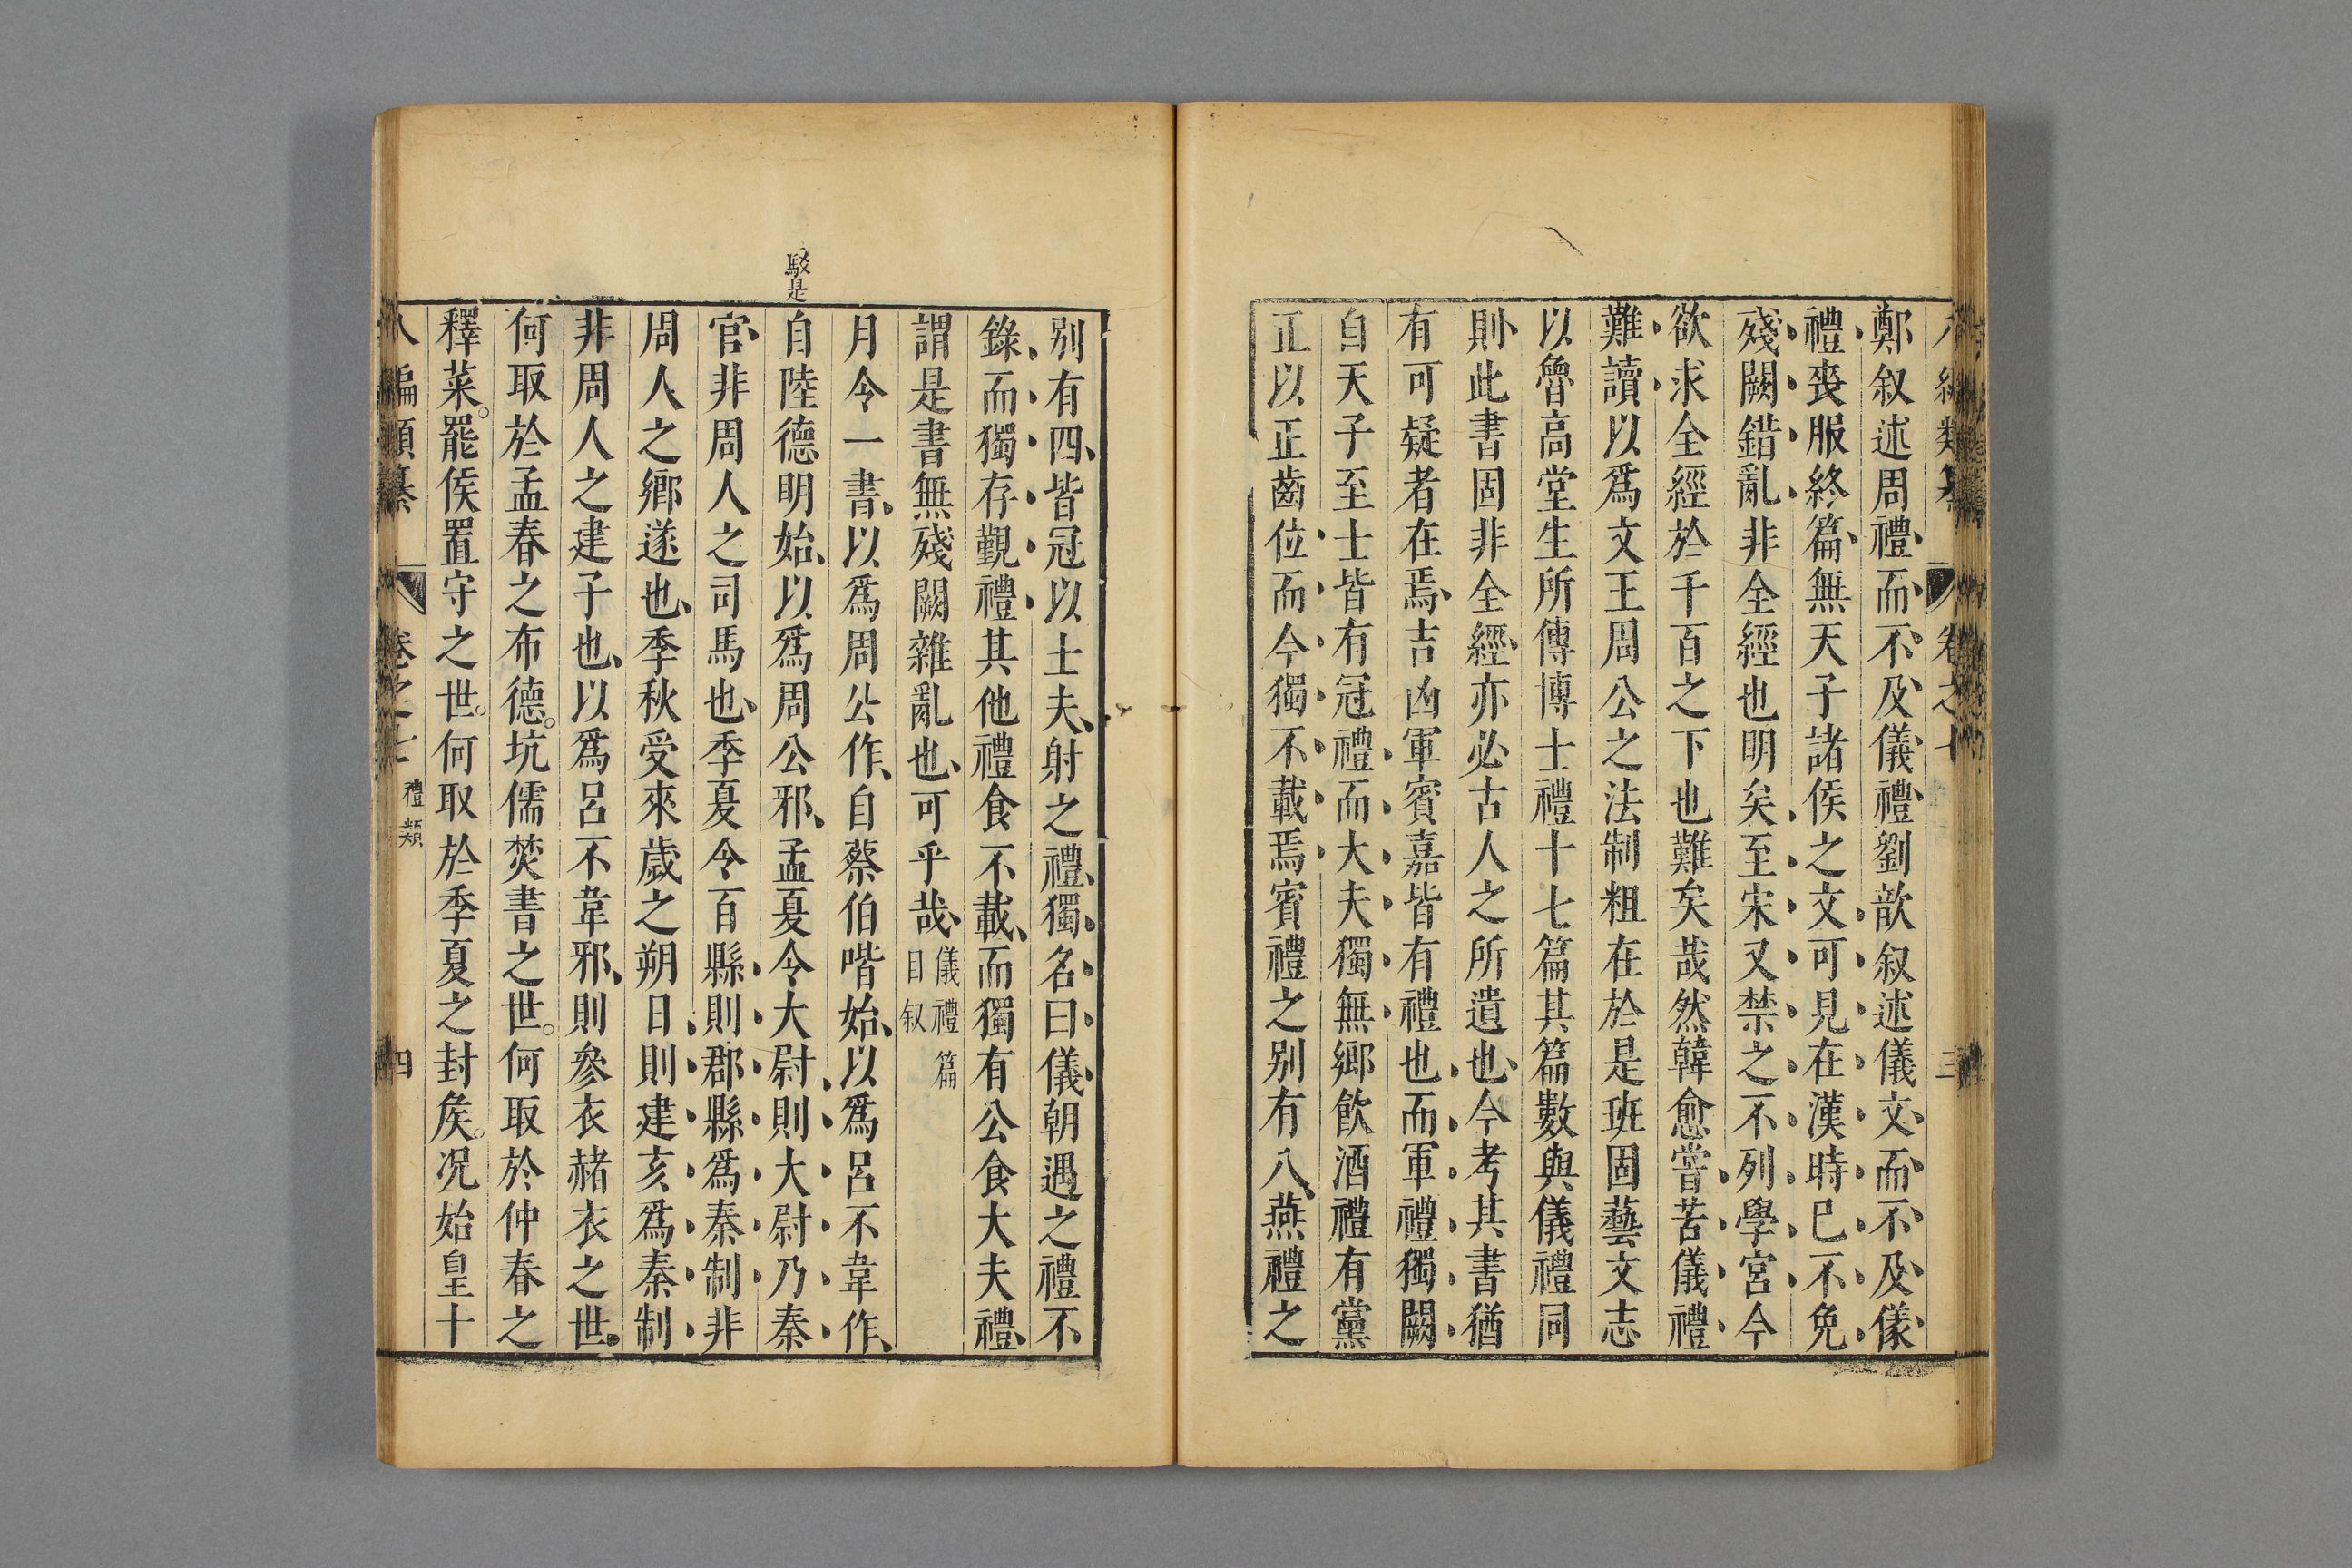 鄭叙述周禮而不及儀禮劉歆叙述儀文而不及儀
禮喪服終篇無天子諸侯之文可見在漢時已不免
殘闕錯亂非全經也明矣至宋又禁之不列學宮今
欲求全經於千百之下也難矣哉然韓愈嘗苦儀禮
難讀以爲文王周公之法制粗在於是班固藝文志
以魯高堂生所傳博士禮十七篇其篇數與儀禮同
則此書固非全經亦必古人之所遺也今考其書猶
有可疑者在焉吉凶軍賓嘉皆有禮也而軍禮獨闕
自天子至士皆有冠禮而大夫獨無鄉飲酒禮有黨
正以正齒位而今獨不載焉賓禮之别有八燕禮之
别有四皆冠以士夫射之禮獨名曰儀朝遇之禮不
錄而獨存覲禮其他禮食不載而獨有公食大夫禮
謂是書無殘闕雜亂也可乎哉
儀禮篇
目叙
月令一書以爲周公作自蔡伯喈始以爲呂不韋作
駁是
自陸德明始以爲周公邪孟夏令大尉則大尉乃秦
官非周人之司馬也季夏令百縣則郡縣爲秦制非
周人之鄉遂也季秋受來歲之朔日則建亥爲秦制
非周人之建子也以爲呂不韋邪則參衣赭衣之世
何取於孟春之布德坑儒焚書之世何取於仲春之
釋菜罷侯置守之世何取於季夏之封侯况始皇十
八編類纂 卷之七 禮類 四